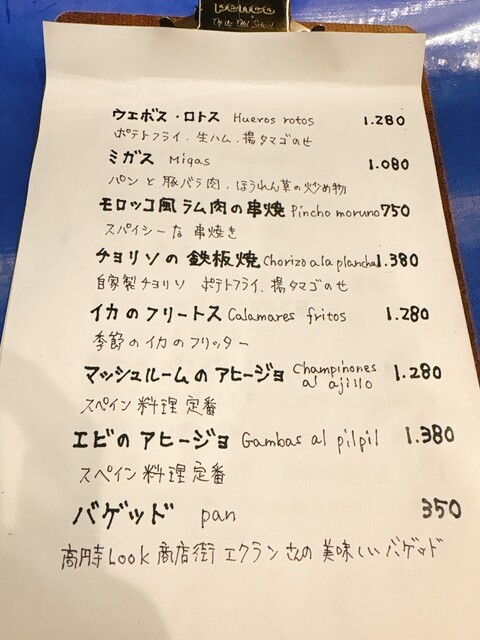 penco
ウエボス・ロトス Huevos rotos 1.280
ポテトフライ、生ハム、揚タマゴのせ
ミガス Migas 1.080
パンと豚バラ肉、ほうれん草の炒め物
モロッコ風ラム肉の串焼 Pincho moruno 750
スパイシーな串焼き
チョリソの鉄板焼 Chorizo a la plancha 1.380
自家製チョリソ ポテトフライ、揚タマゴのせ
イカのフリートス Calamares fritos 1.280
季節のイカのフリッター
マッシュルームのアヒージョ Champiñones al ajillo 1.280
スペイン料理定番
エビのアヒージョ Gambas al pilpil 1.380
スペイン料理定番
バゲッド pan 350
高円寺Look商店街エクランさんの美味しいバゲッド